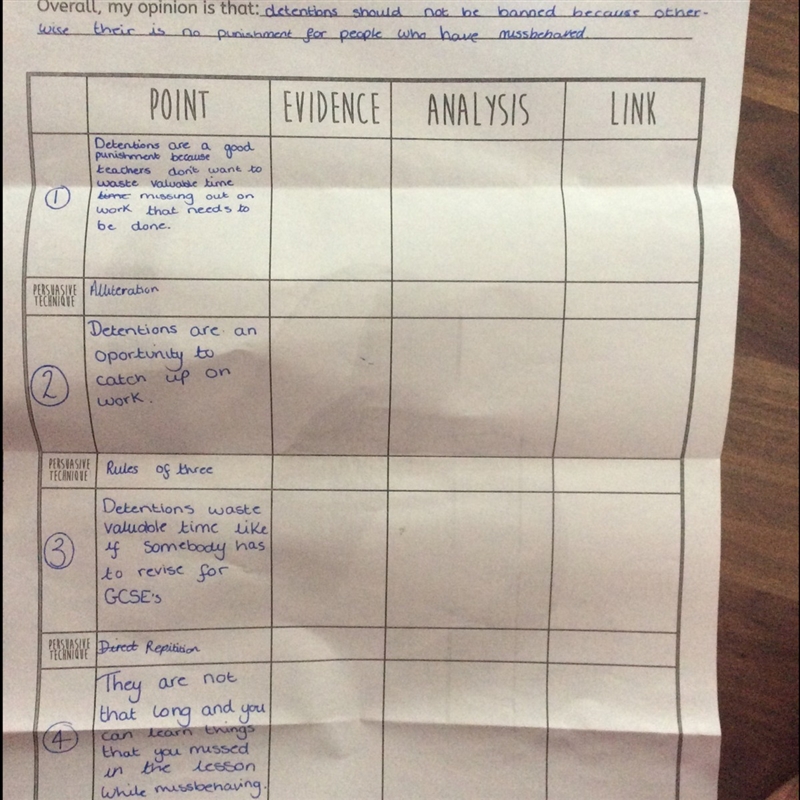 Overall, my opinion is that: detentions should not be banned because other-
wise their is no punishment for people who have missbehaved.
POINT EVIDENCE ANALYSIS LINK
1
Detentions are a good
punishment because
teachers don't want to
waste valuable time
time missing out on
work that needs to
be done.
PERSUASIVE
TECHNIQUE
Alliteration
2
Detentions are an
oportunity to
catch up on
work.
PERSUASIVE
TECHNIQUE
Rules of three
3
Detentions waste
valuable time like
if somebody has
to revise for
GCSE's
PERSUASIVE
TECHNIQUE
Direct Repitition
4
They are not
that long and you
can learn things
that you missed
in the lesson
while missbehaving.